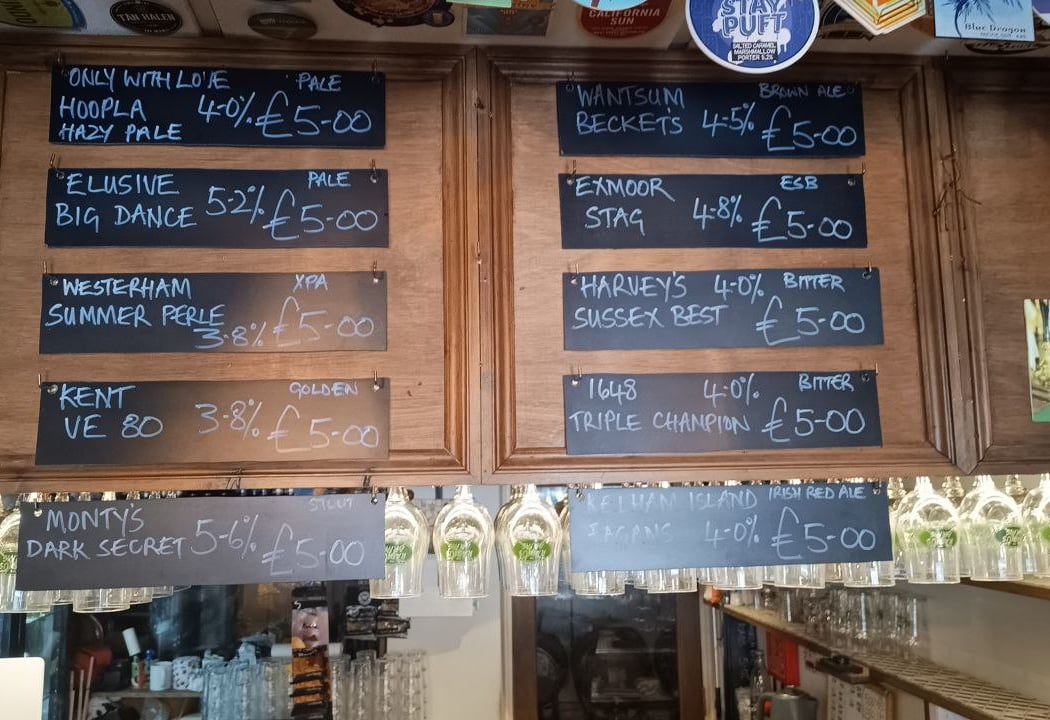 TAN HALEN
CALIFORNIA
SUN
STAY
PUFT
SALTED CARAMEL
MARSHMALLOW
PORTER 5.2%
Blue Dragon
ONLY WITH LOVE PALE
HOOPLA 4-0% £5-00
HAZY PALE
ELUSIVE PALE
BIG DANCE 5-2% £5-00
WESTERHAM XPA
SUMMER PERLE
3-8% £5-00
KENT GOLDEN
VE 80 3-8% £5-00
MONTY'S STOUT
DARK SECRET 5-6% £5-00
WANTSUM BROWN ALE
BECKETS 4-5% £5-00
EXMOOR ESB
STAG 4-8% £5-00
HARVEY'S 4-0% BITTER
SUSSEX BEST £5-00
1648 4-0% BITTER
TRIPLE CHAMPION £5-00
KELHAM ISLAND IRISH RED ALE
FAGANS 4-0% £5-00